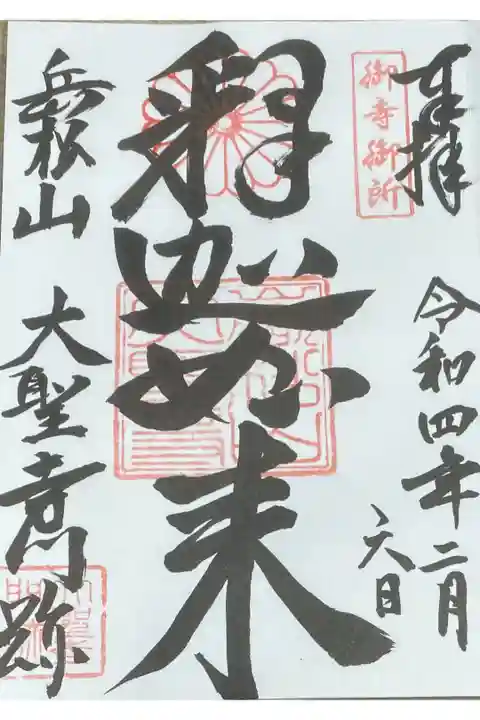 奉拝
御寺御所
令和四年二月
六日
釋迦如来
岳松山
大聖寺門跡